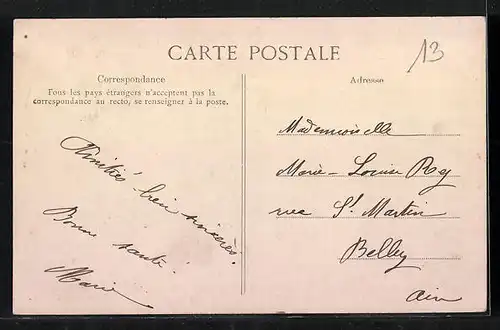 CARTE POSTALE
13
Correspondance
Tous les pays étrangers n'acceptent pas la
correspondance au recto, se renseigner à la poste.
Amitiés bien sincères.
Bonne santé.
Marie
Adresse
Mademoiselle
Marie-Louise Rey
rue St Martin
Belley
Ain